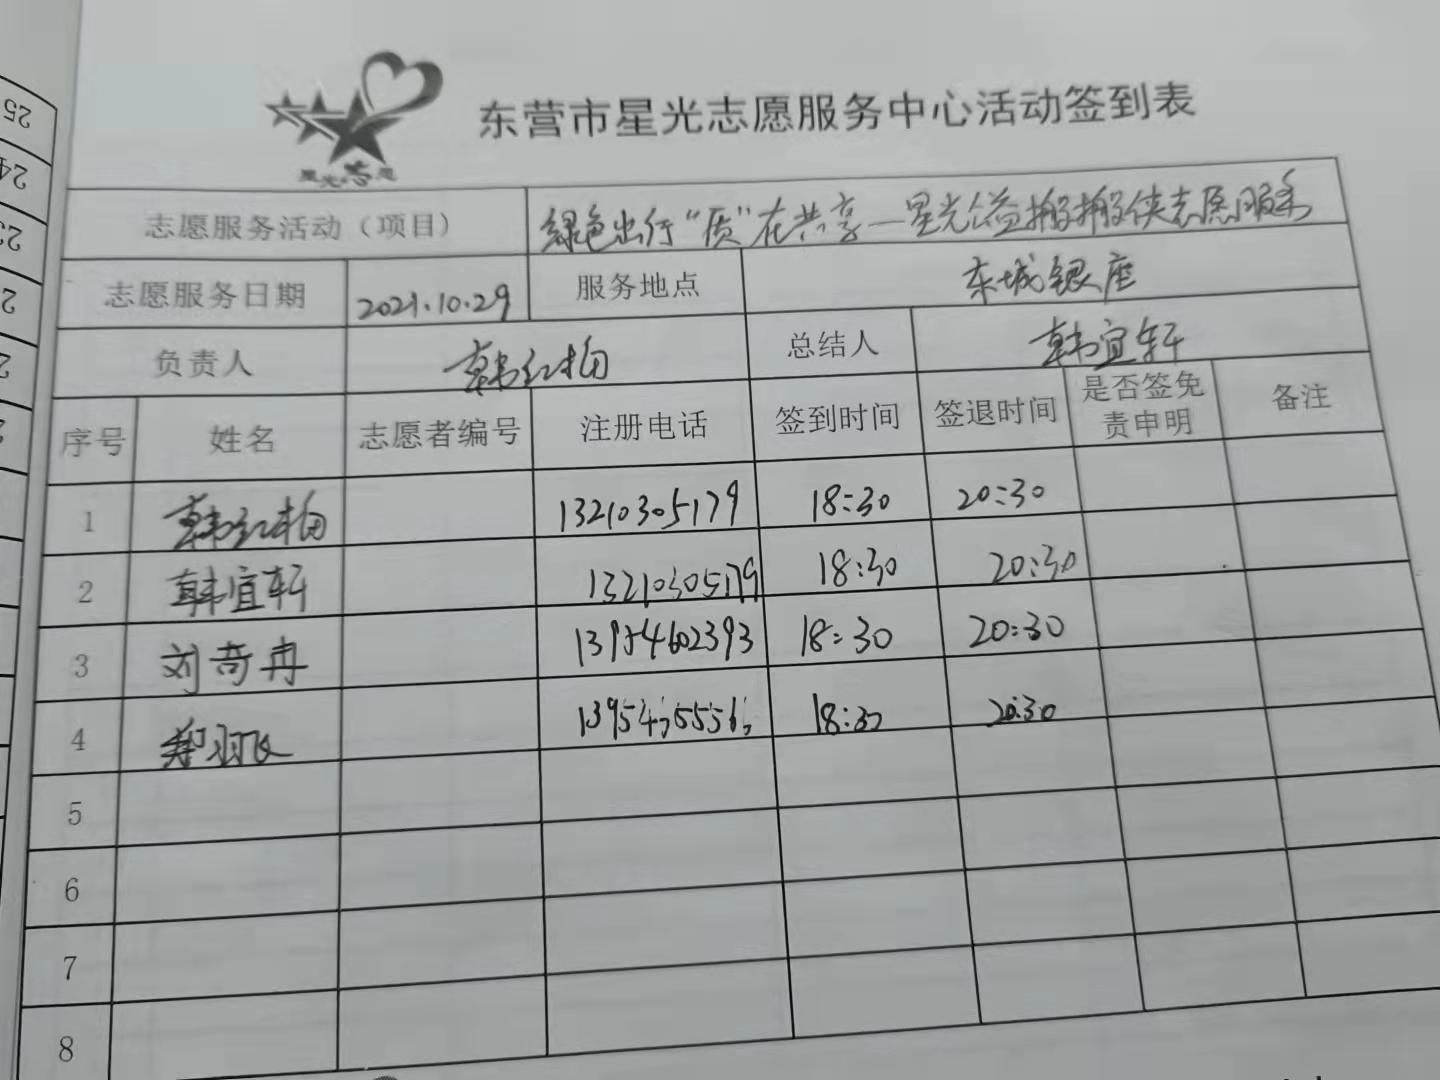 星光志愿
东营市星光志愿服务中心活动签到表
志愿服务活动（项目） 绿色出行“质”在共享—星光公益搬搬侠志愿服务
志愿服务日期 2021.10.29 服务地点 东城银座
负责人 韩红梅 总结人 韩宜轩
序号 姓名 志愿者编号 注册电话 签到时间 签退时间 是否签免责申明 备注
1 韩红梅 13210305179 18:30 20:30
2 韩宜轩 13210305179 18:30 20:30
3 刘奇冉 13954602393 18:30 20:30
4 郑羽飞 18:30 20:30
5
6
7
8
25
24